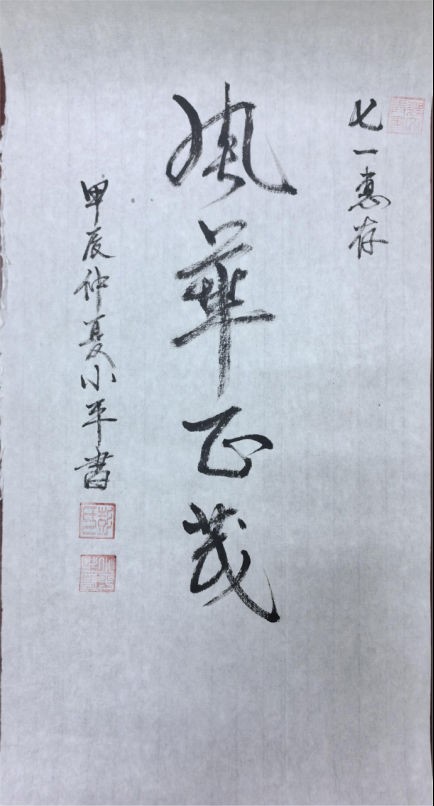 七一惠存
風華正茂
甲辰仲夏小平書